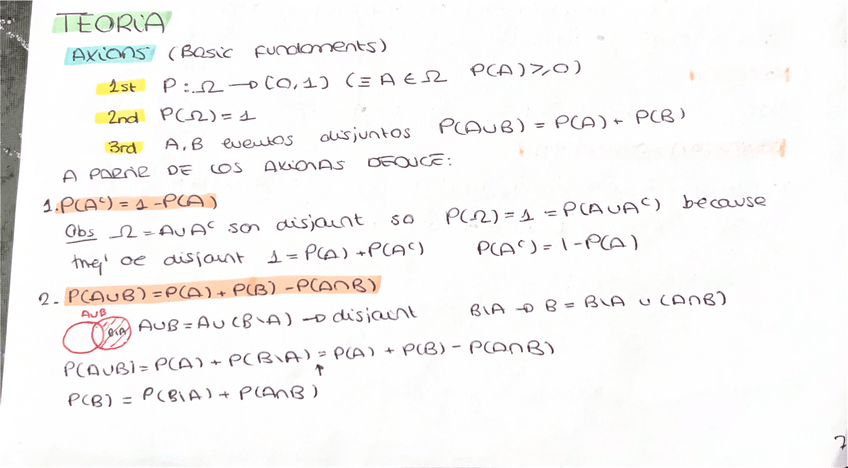 TEORIA
AXIOMS (Basic Fundaments)
1st P: Ω → [0,1] (≡ A ∈ Ω P(A) ≥ 0)
2nd P(Ω) = 1
3rd A, B eventos disjuntos P(A∪B) = P(A) + P(B)
A PARTIR DE LOS AXIOMAS DEDUCE:
1. P(Aᶜ) = 1 - P(A)
Obs Ω = A∪Aᶜ son disjoint so P(Ω) = 1 = P(A∪Aᶜ) because
they' oe disjoint 1 = P(A) + P(Aᶜ) P(Aᶜ) = 1 - P(A)
2. P(A∪B) = P(A) + P(B) - P(A∩B)
A∪B
B\A A∪B = A∪(B\A) → disjoint B\A → B = B\A ∪ (A∩B)
P(A∪B) = P(A) + P(B\A) = P(A) + P(B) - P(A∩B)
↑
P(B) = P(B\A) + P(A∩B)
7